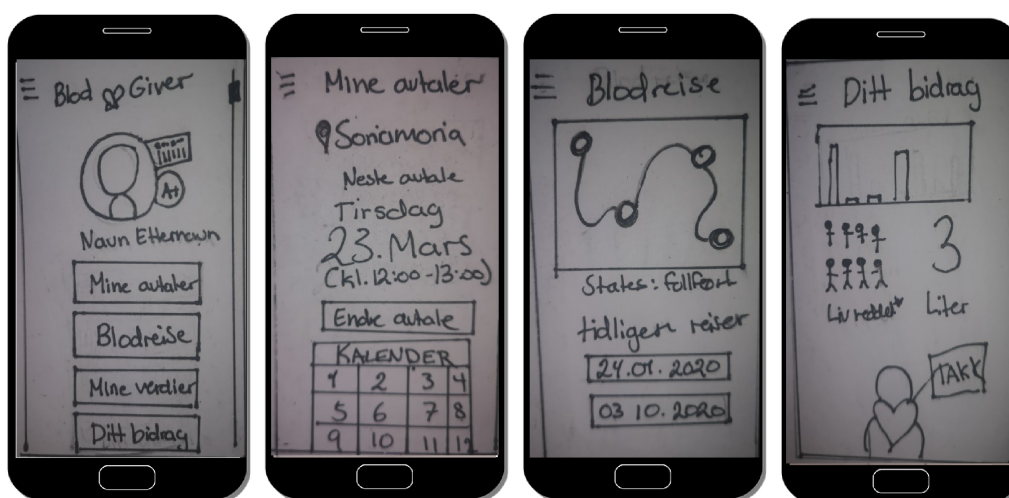 Blod Giver
A+
Navn Etternavn
Mine avtaler
Blodreise
Mine verdier
Ditt bidrag
Mine avtaler
Soriamoria
Neste avtale
Tirsdag
23. Mars
(Kl. 12:00-13:00)
Endre avtale
KALENDER
1 2 3 4
5 6 7 8
9 10 11 12
Blodreise
Status: fullført
tidligere reiser
24.01.2020
03 10.2020
Ditt bidrag
3
Liv reddet* Liter
TAKK